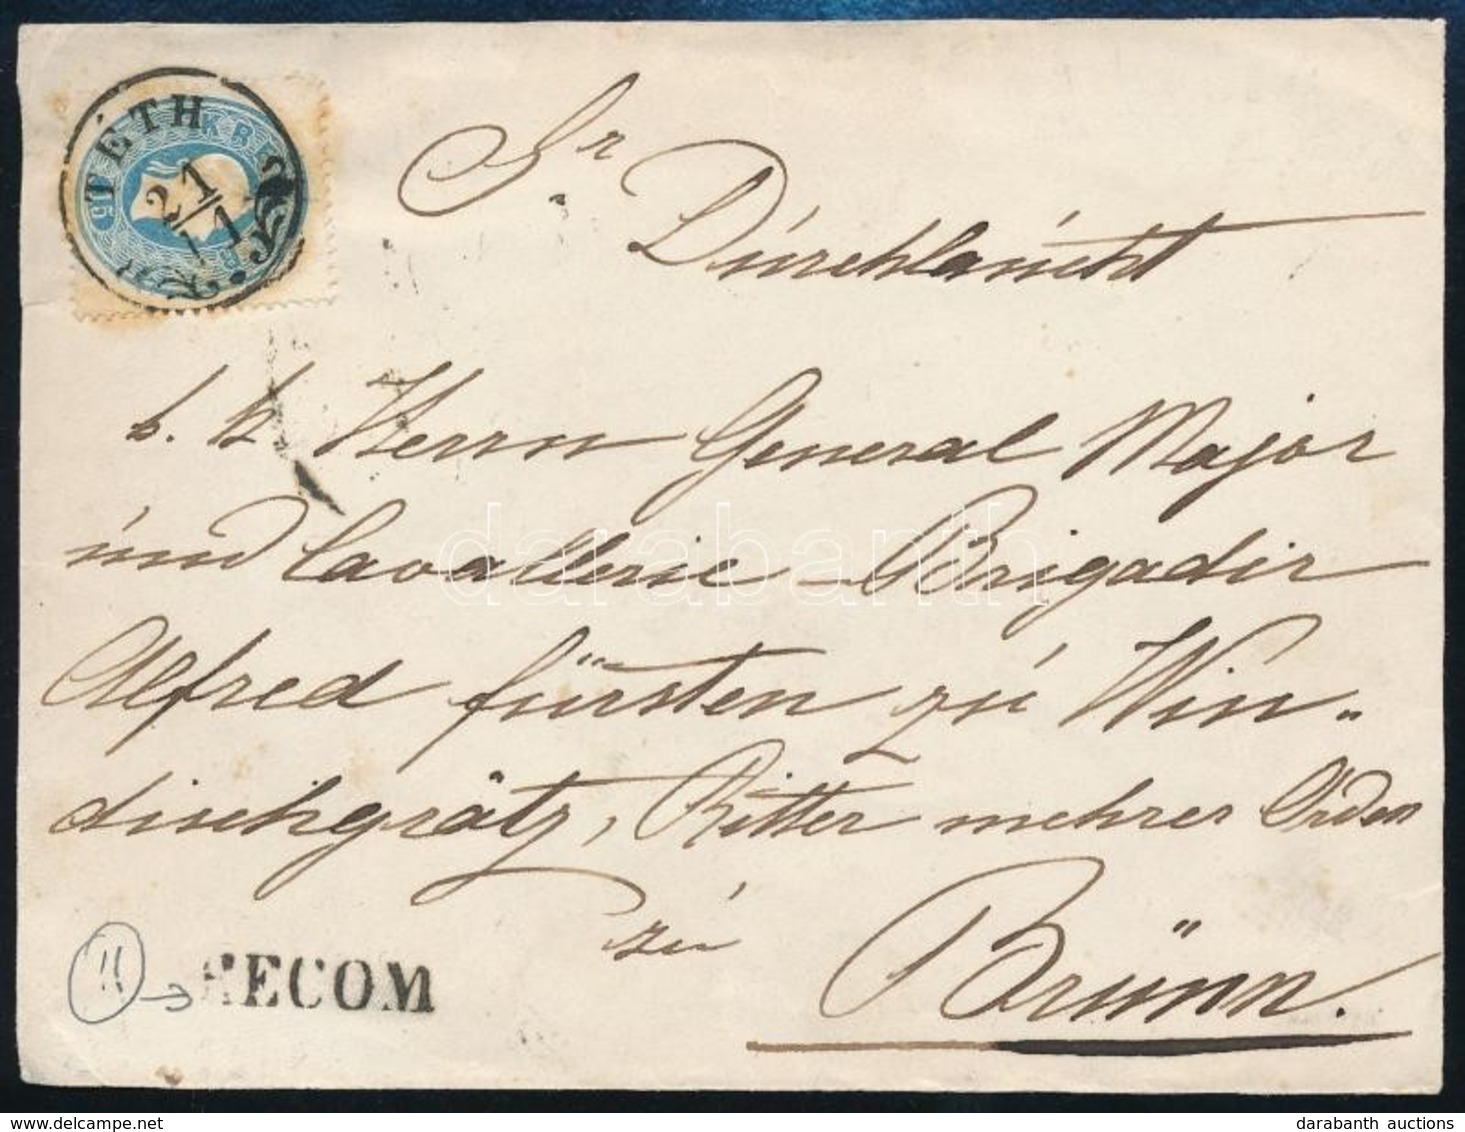 TÉTH
21/11
KR
15
Sr.
Dúrchlaúcht
k. k. Herrn General Major
únd Cavallerie-Brigadir
Alfred fürsten zú Win„
dischgrätz, Ritter mehrer Orden
zú
Brünn.
RECOM
darabanth
delcampe.net
darabanth auctions